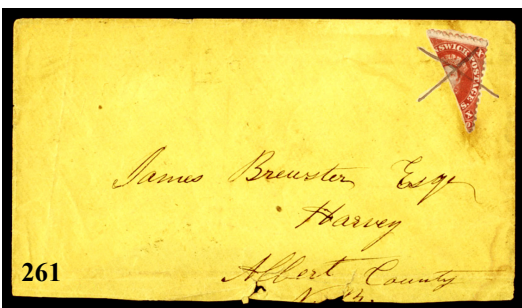 SWICK POSTAGE
James Brewster Esqr
Harvey
Albert County
261